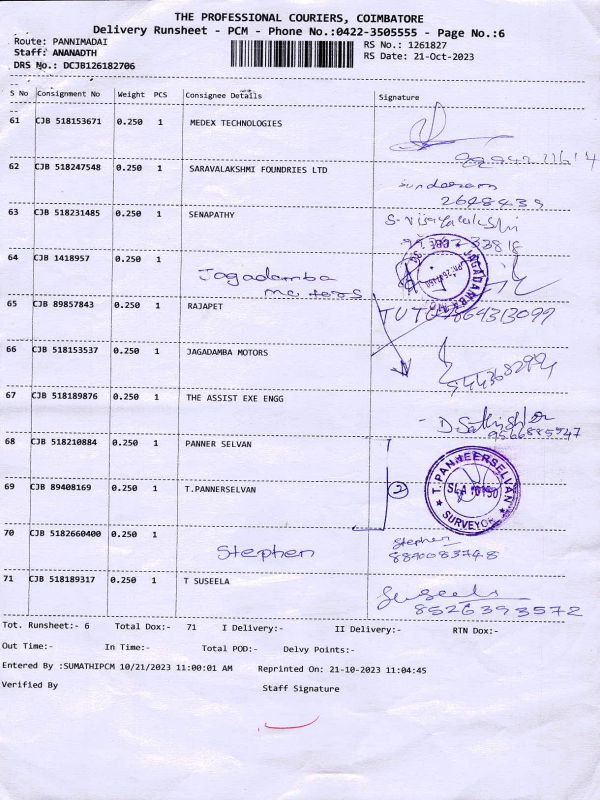 THE PROFESSIONAL COURIERS, COIMBATORE
Delivery Runsheet - PCM - Phone No.:0422-3505555 - Page No.:6
Route: PANNIMADAI
Staff: ANANADTH
DRS No.: DCJB126182706
RS No.: 1261827
RS Date: 21-Oct-2023
S No Consignment No Weight PCS Consignee Details Signature
61 CJB 518153671 0.250 1 MEDEX TECHNOLOGIES
62 CJB 518247548 0.250 1 SARAVALAKSHMI FOUNDRIES LTD Sundaram
2648439
63 CJB 518231485 0.250 1 SENAPATHY S-Vijayalakshmi
64 CJB 1418957 0.250 1 Jagadamba
Motors
JAGADAMBA
65 CJB 89857843 0.250 1 RAJAPET
66 CJB 518153537 0.250 1 JAGADAMBA MOTORS
67 CJB 518189876 0.250 1 THE ASSIST EXE ENGG
9566885547
68 CJB 518210884 0.250 1 PANNER SELVAN
69 CJB 89408169 0.250 1 T.PANNERSELVAN 2
T.PANNEERSELVAN
SURVEYOR
70 CJB 5182660400 0.250 1 Stephen Stephen
8890083748
71 CJB 518189317 0.250 1 T SUSEELA Suseela
8526393572
Tot. Runsheet:- 6 Total Dox:- 71 I Delivery:- II Delivery:- RTN Dox:-
Out Time:- In Time:- Total POD:- Delvy Points:-
Entered By :SUMATHIPCM 10/21/2023 11:00:01 AM Reprinted On: 21-10-2023 11:04:45
Verified By Staff Signature